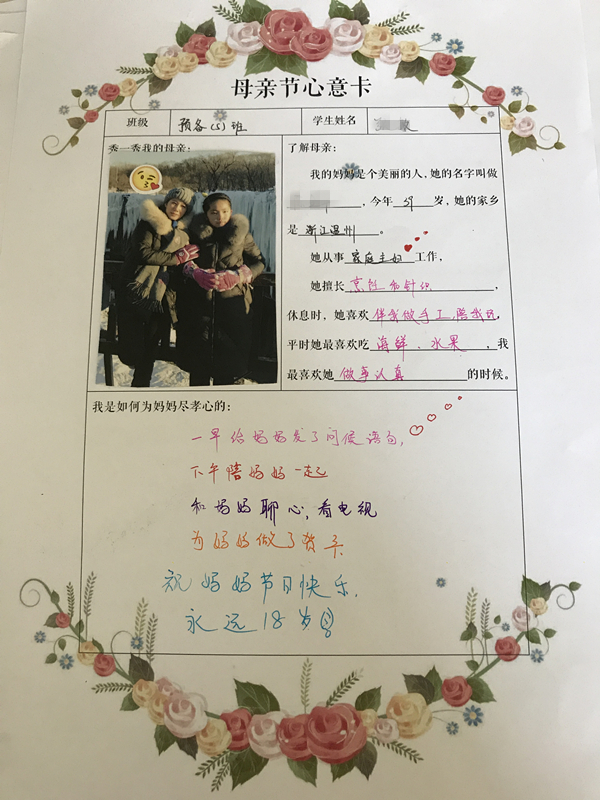 母亲节心意卡
班级 预备(5)班 学生姓名
秀一秀我的母亲:
了解母亲:
我的妈妈是个美丽的人,她的名字叫做
,今年 59 岁,她的家乡
是 浙江温州 。
她从事 家庭主妇 工作,
她擅长 烹饪和针织 ,
休息时,她喜欢 伴我做手工,陪我玩,
平时她最喜欢吃 海鲜、水果 ,我
最喜欢她 做事认真 的时候。
我是如何为妈妈尽孝心的:
一早给妈妈发了问候语句,
下午陪妈妈一起
和妈妈聊心,看电视
为妈妈做了贺卡
祝妈妈节日快乐,
永远18岁